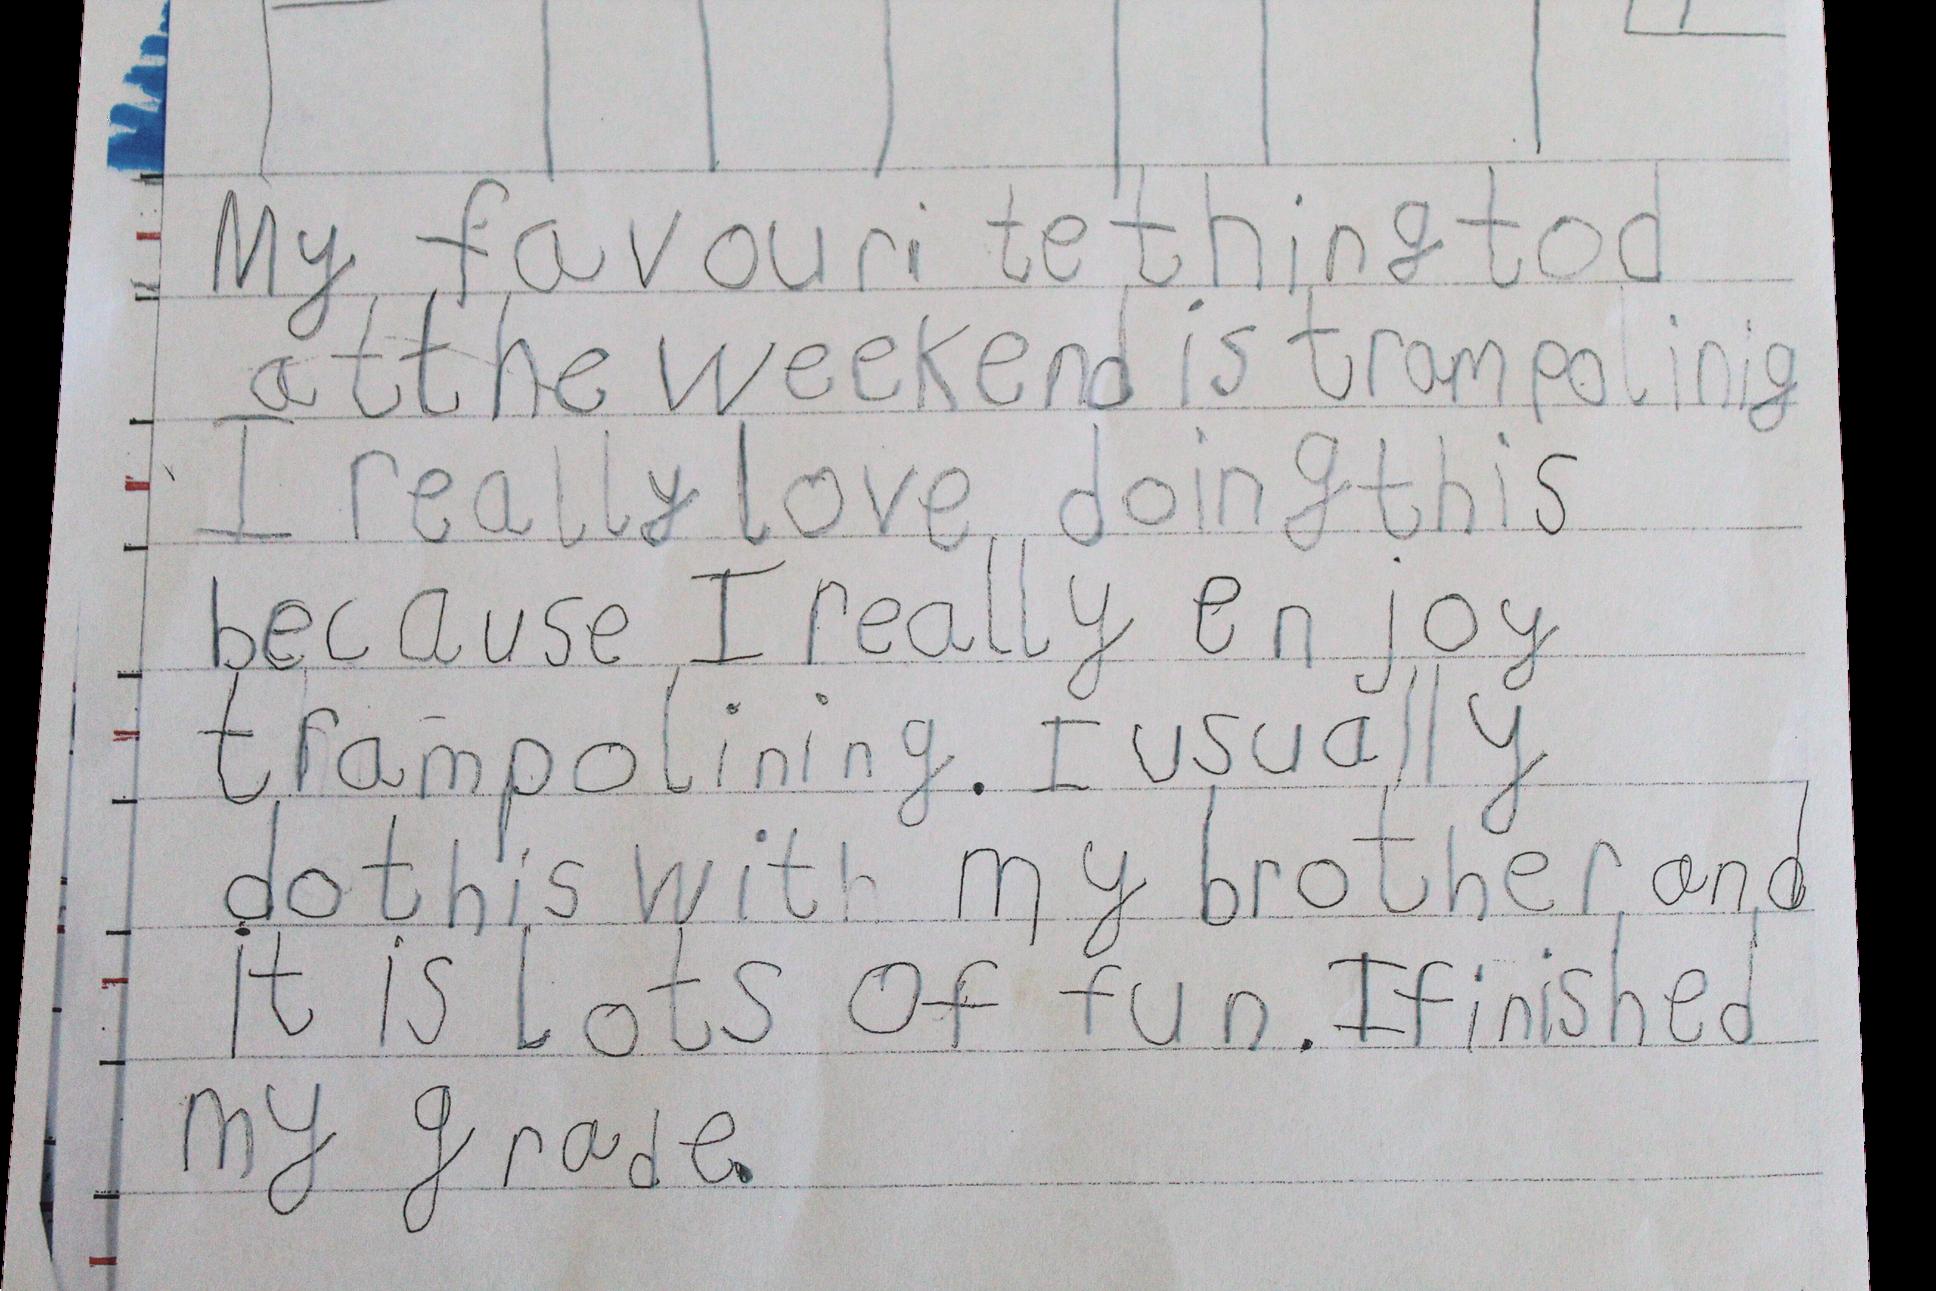 My favourite thing tod
at the weekend is trampolinig
I really love doing this
because I really enjoy
trampolining. I usually
do this with my brother and
it is lots of fun. I finished
my grade.